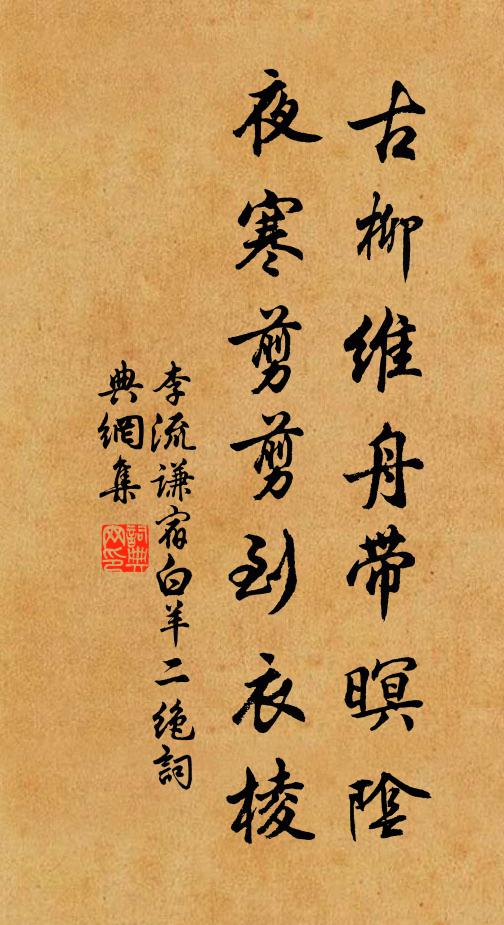 古柳維舟带暝陰
夜寒剪剪到衣棱
李流謙宿白羊二絶詞
典網集
詞典网印